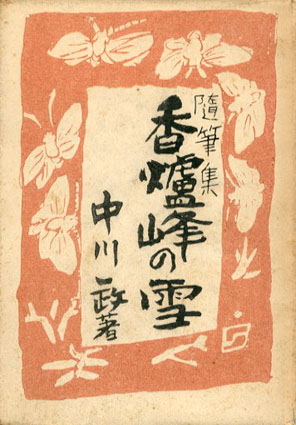 隨筆集
香爐峰の雪
中川一政著